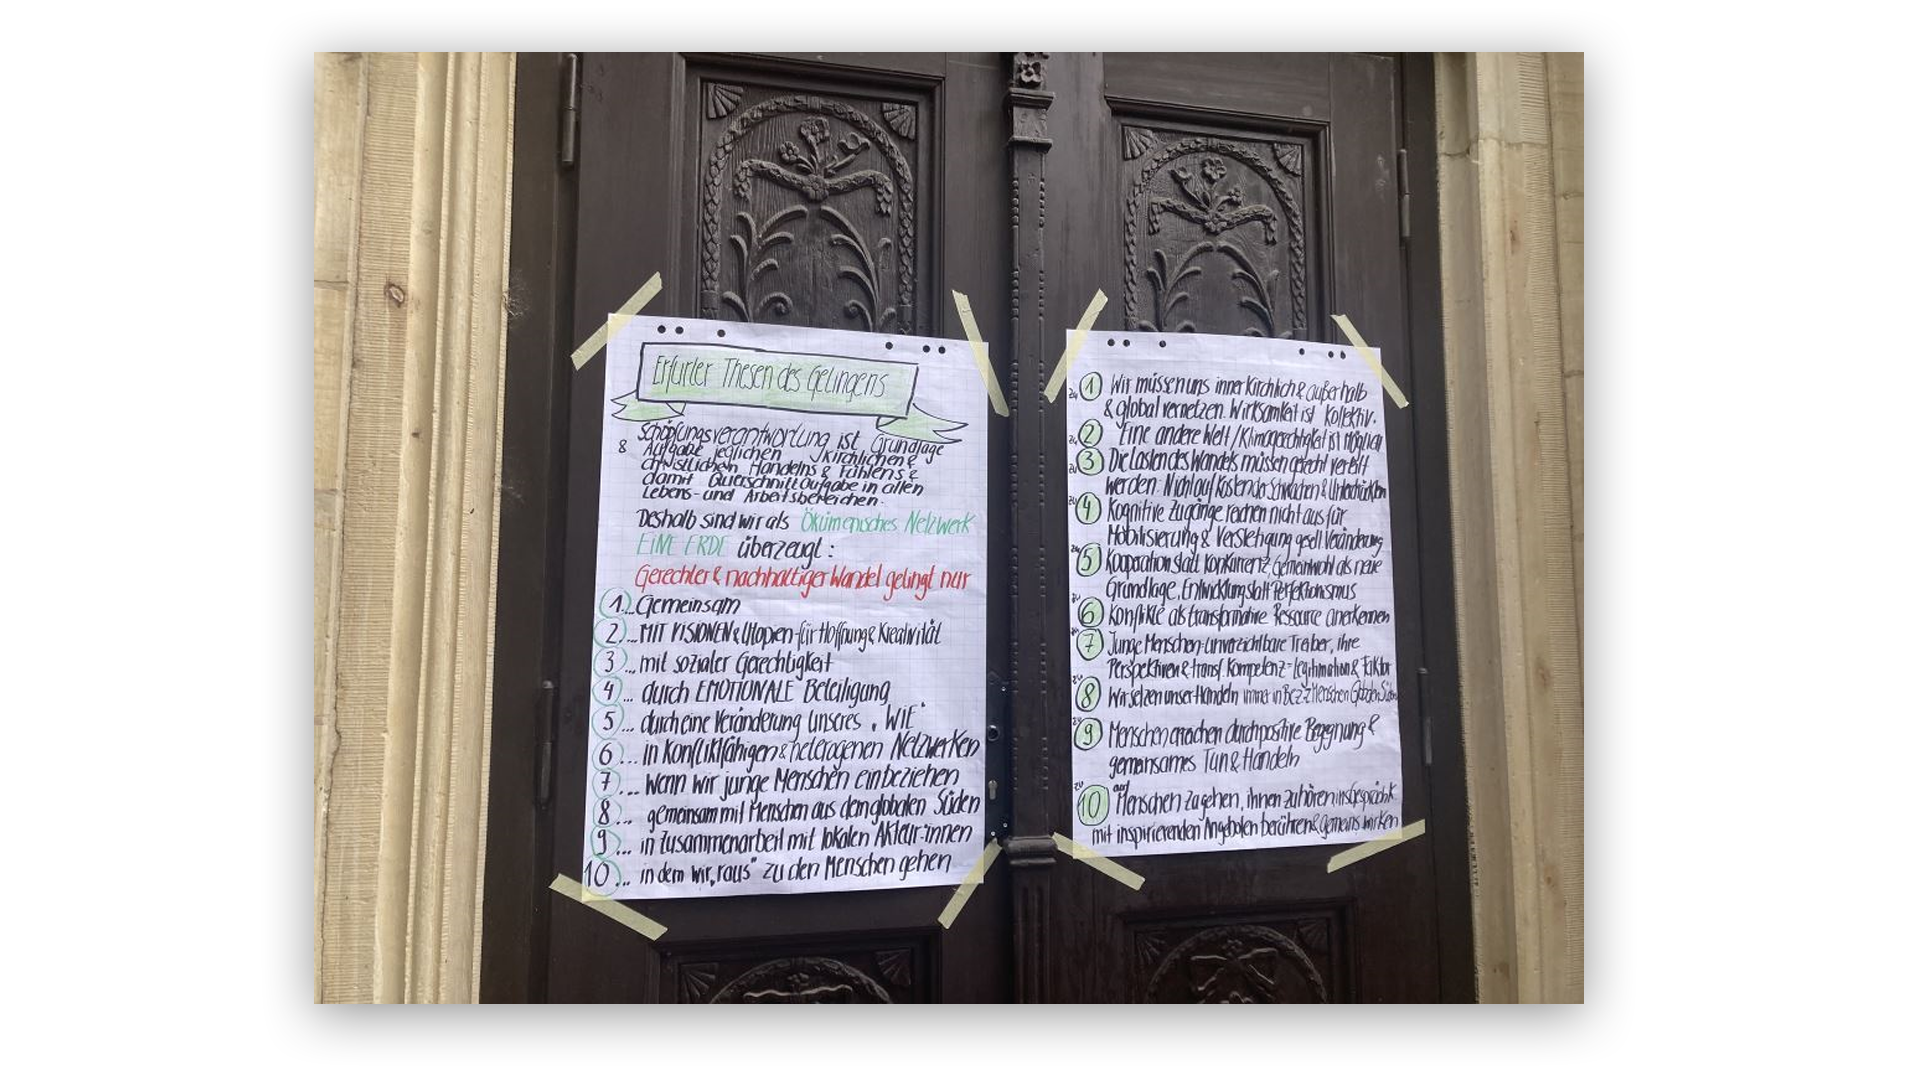 Erfurter Thesen des Gelingens
Schöpfungsverantwortung ist Grundlage
& Aufgabe jeglichen kirchlichen &
christlichen Handelns & Fühlens &
damit Querschnittaufgabe in allen
Lebens- und Arbeitsbereichen.
Deshalb sind wir als Ökumenisches Netzwerk
EINE ERDE überzeugt:
Gerechter & nachhaltiger Wandel gelingt nur
1... Gemeinsam
2... MIT VISIONEN & Utopien für Hoffnung & Kreativität
3... mit sozialer Gerechtigkeit
4... durch EMOTIONALE Beteiligung
5... durch eine Veränderung unseres "WIE"
6... in Konfliktfähigen & heterogenen Netzwerken
7... Wenn wir junge Menschen einbeziehen
8... gemeinsam mit Menschen aus dem globalen Süden
9... in Zusammenarbeit mit lokalen Akteur:innen
10... in dem wir „raus" zu den Menschen gehen
zu 1 Wir müssen uns innerkirchlich & außerhalb
& global vernetzen. Wirksamkeit ist kollektiv.
zu 2 Eine andere Welt / Klimagerechtigkeit ist möglich
zu 3 Die Lasten des Wandels müssen gerecht verteilt
werden: Nicht auf Kosten der Schwachen & Unterdrückten
zu 4 Kognitive Zugänge reichen nicht aus für
Mobilisierung & Verstetigung gesell. Veränderung
zu 5 Kooperation statt Konkurrenz, Gemeinwohl als neue
Grundlage, Entwicklung statt Perfektionismus
zu 6 Konflikte als transformative Ressource anerkennen
zu 7 Junge Menschen unverzichtbare Treiber, ihre
Perspektiven & transf. Kompetenz = Legitimation & Faktor
zu 8 Wir setzen unser Handeln immer in Bez. z. Menschen Globalen Süden
zu 9 Menschen erreichen durch positive Begegnung &
gemeinsames Tun & Handeln
zu 10 auf Menschen zugehen, ihnen zuhören ins Gespräch
mit inspirierenden Angeboten berühren & gemeins. wirken